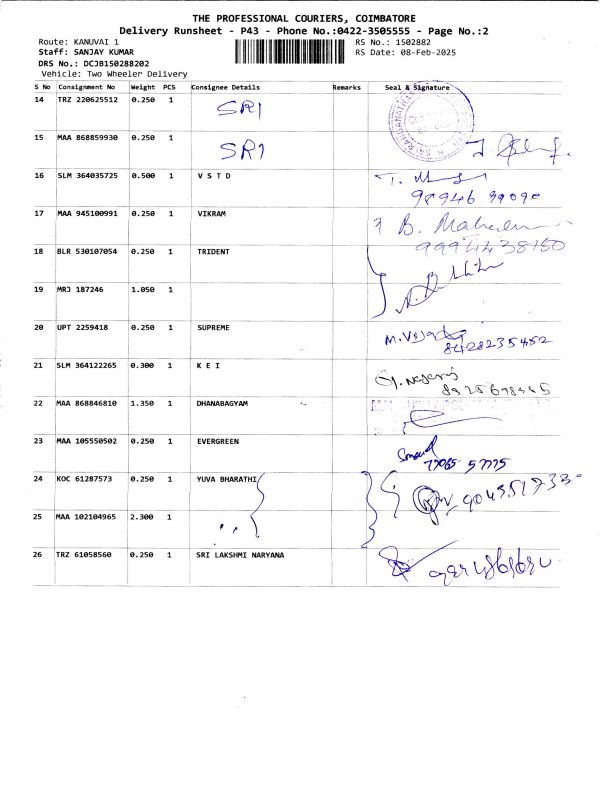 THE PROFESSIONAL COURIERS, COIMBATORE
Delivery Runsheet - P43 - Phone No.:0422-3505555 - Page No.:2
Route: KANUVAI 1 RS No.: 1502882
Staff: SANJAY KUMAR RS Date: 08-Feb-2025
DRS No.: DCJB150288202
Vehicle: Two Wheeler Delivery
S No Consignment No Weight PCS Consignee Details Remarks Seal & Signature
14 TRZ 220625512 0.250 1 SRI
15 MAA 868859930 0.250 1 SRI
16 SLM 364035725 0.500 1 V S T D
17 MAA 945100991 0.250 1 VIKRAM
18 BLR 530107054 0.250 1 TRIDENT 9994438150
19 MRJ 187246 1.050 1
20 UPT 2259418 0.250 1 SUPREME
8428235452
21 SLM 364122265 0.300 1 K E I
22 MAA 868846810 1.350 1 DHANABAGYAM
23 MAA 105550502 0.250 1 EVERGREEN
24 KOC 61287573 0.250 1 YUVA BHARATHI
25 MAA 102104965 2.300 1 ,,
26 TRZ 61058560 0.250 1 SRI LAKSHMI NARYANA